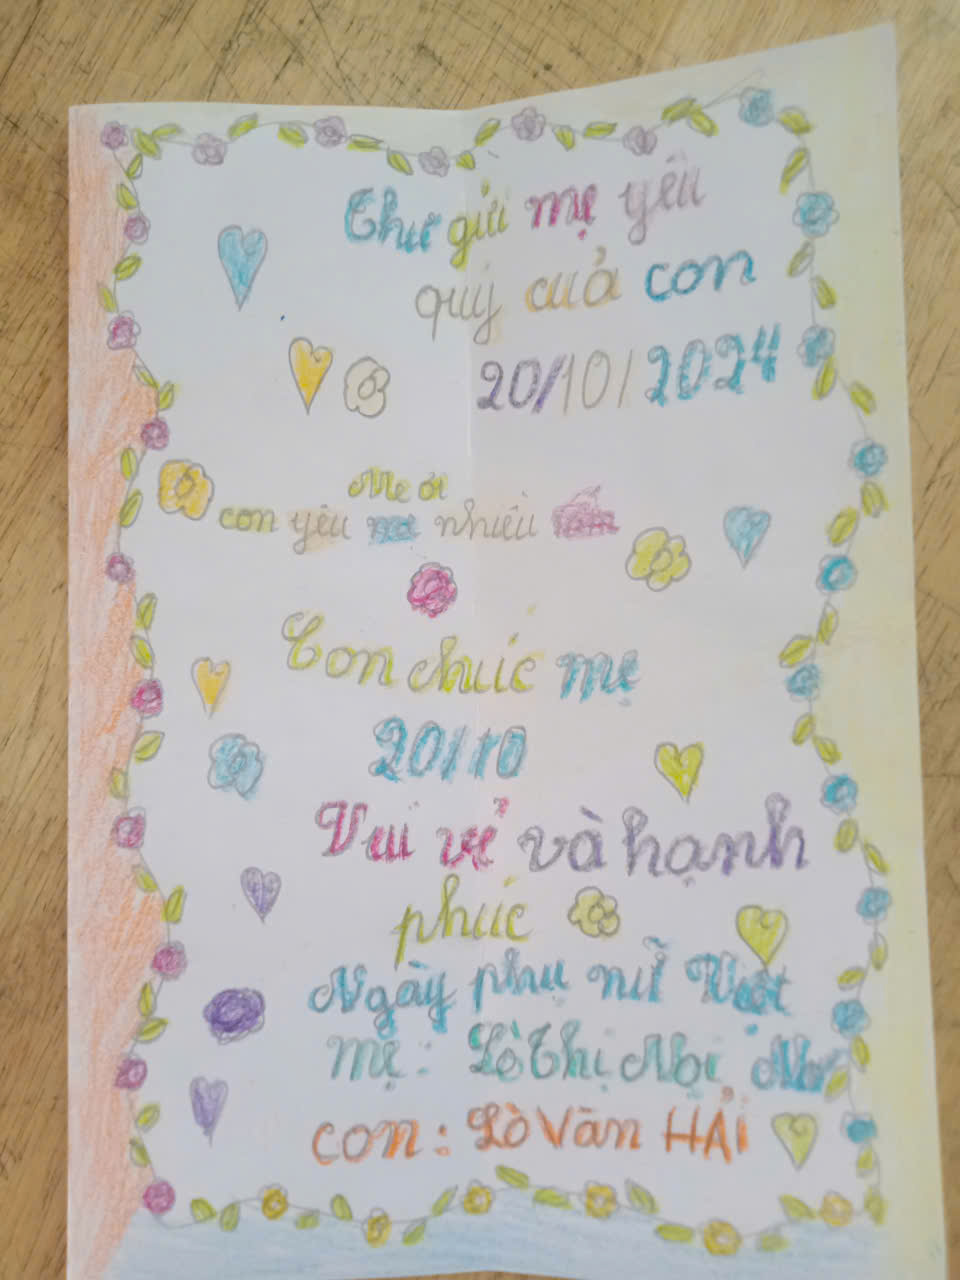 Thư gửi mẹ yêu
quý cuả con
20/10/2024
Mẹ ơi
con yêu mẹ nhiều lắm
Con chúc mẹ
20/10
Vui vẻ và hạnh
phúc
Ngày phụ nữ Việt
Mẹ: Lò Thị Nọi Na
con: Lò Văn HẢi